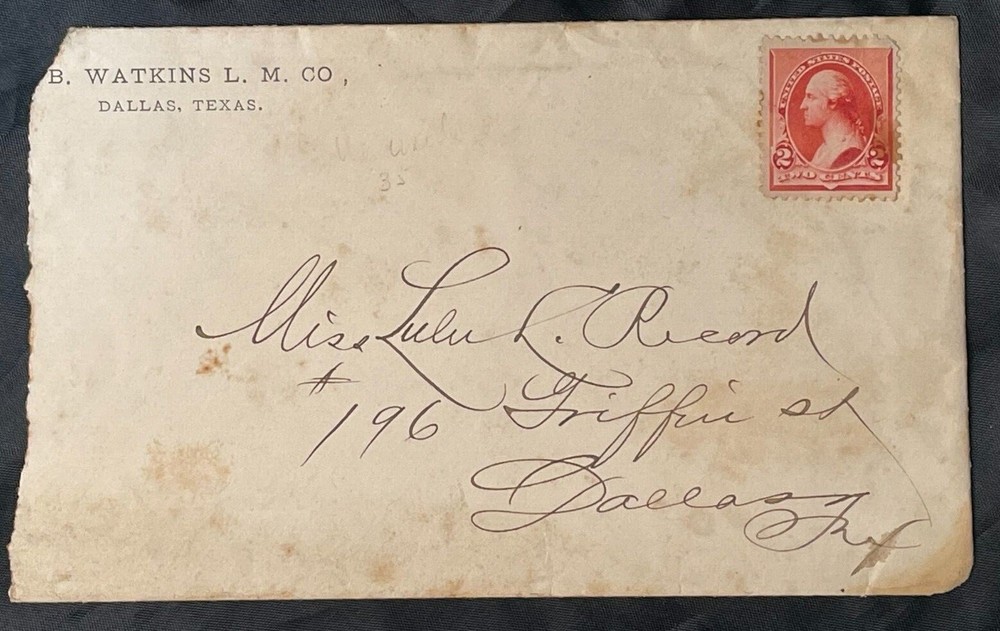 B. WATKINS L. M. CO,
DALLAS, TEXAS.
UNITED STATES POSTAGE
2 2
TWO CENTS
35
Miss Lulu L. Record
# 196 Griffin st
Dallas
Tex